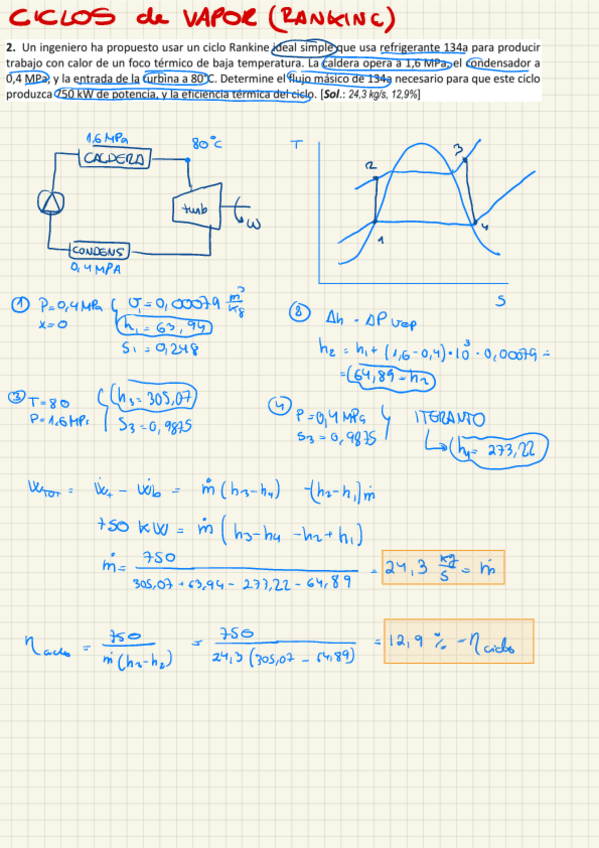 CICLOS de VAPOR (RANKINE)
2. Un ingeniero ha propuesto usar un ciclo Rankine ideal simple que usa refrigerante 134a para producir
trabajo con calor de un foco térmico de baja temperatura. La caldera opera a 1,6 MPa, el condensador a
0,4 MPa, y la entrada de la turbina a 80°C. Determine el flujo másico de 134a necesario para que este ciclo
produzca 750 kW de potencia, y la eficiencia térmica del ciclo. [Sol.: 24,3 kg/s, 12,9%]
1,6 MPa
80°C
CALDERA
turb
W
CONDENS
0,4 MPA
T
2
3
1
4
S
① P=0,4 MPa { v₁=0,00079 m³/kg
x=0 h₁=63,94
s₁=0,248
② Δh = ΔP vap
h₂ = h₁ + (1,6-0,4)·10³ · 0,00079 =
= 64,89 = h₂
③ T=80 { h₃=305,07
P=1,6MPa s₃=0,9875
④ P=0,4 MPa } ITERANTO
s₃=0,9875 ↳ h₄ = 273,22
ẆTOT = Ẇt - Ẇb = ṁ(h₃-h₄) -(h₂-h₁)ṁ
750 KW = ṁ(h₃-h₄ -h₂+h₁)
ṁ = 750 / (305,07+63,94-273,22-64,89) = 24,3 kg/s = ṁ
ηciclo = 750 / ṁ(h₃-h₂) = 750 / 24,3(305,07-64,89) = 12,9 % = ηciclo